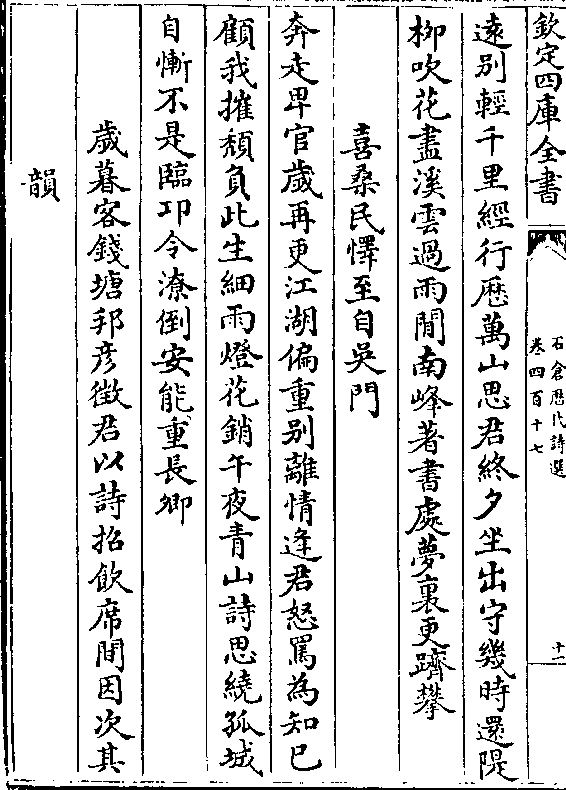 欽定四庫全書
石倉歴代詩選
卷四百十七
十一
遠别輕千里經行歴萬山思君終夕坐出守幾時還隄
栁吹花盡溪雲過雨閒南峰著書處夢裏更躋攀
喜桑民懌至自吳門
奔走卑官歲再更江湖偏重别離情逢君怒罵為知已
顧我摧頽負此生細雨燈花銷午夜青山詩思繞孤城
自慚不是臨卭令潦倒安能重長卿
歲暮客錢塘邦彦徴君以詩招飲席間因次其
韻